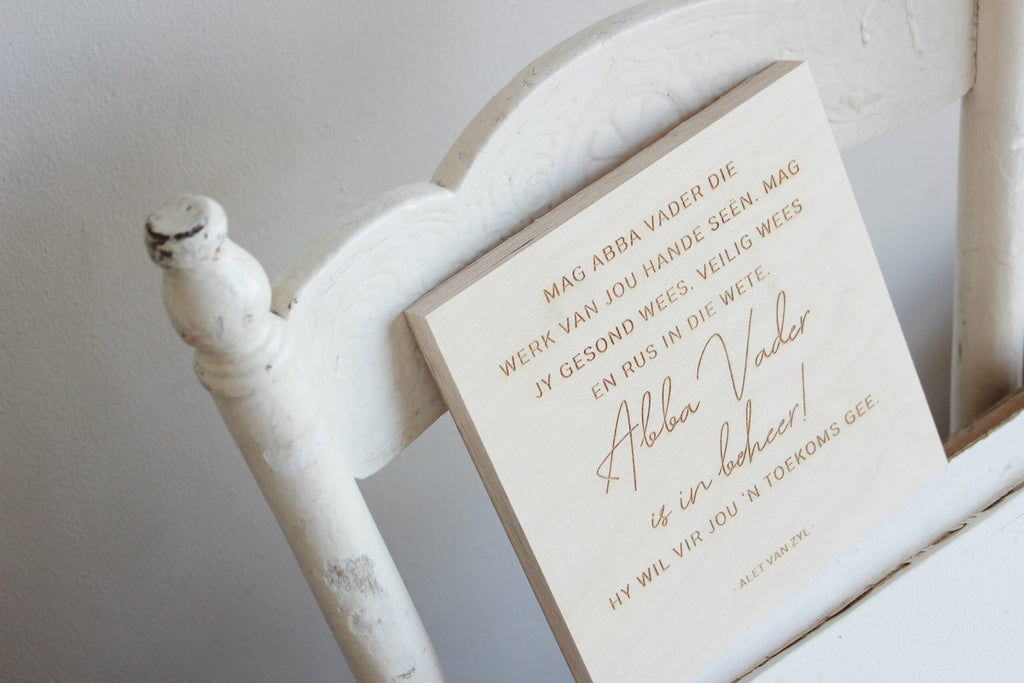 MAG ABBA VADER DIE
WERK VAN JOU HANDE SEËN. MAG
JY GESOND WEES, VEILIG WEES
EN RUS IN DIE WETE.
Abba Vader
is in beheer!
HY WIL VIR JOU 'N TOEKOMS GEE.
- ALET VAN ZYL -